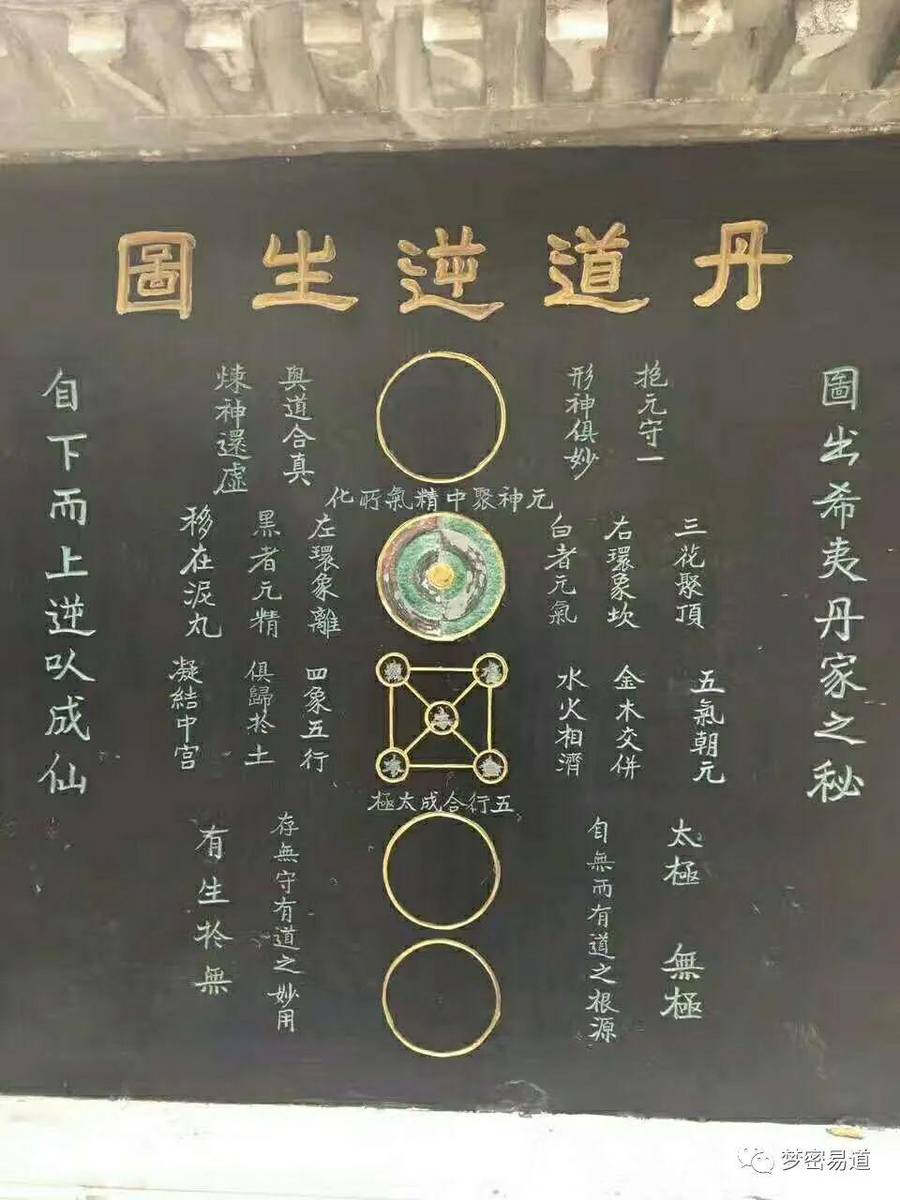 丹道逆生圖
圖出希夷丹家之秘
抱元守一
形神俱妙
與道合真
煉神還虛
元神聚中精氣所化
三花聚頂
右環象坎
白者元氣
左環象離
黑者元精
移在泥丸
五氣朝元
金木交併
水火相濟
四象五行
俱歸於土
凝結中宮
五行合成太極
太極 無極
自無而有道之根源
存無守有道之妙用
有生於無
自下而上逆㕥成仙
梦密易道